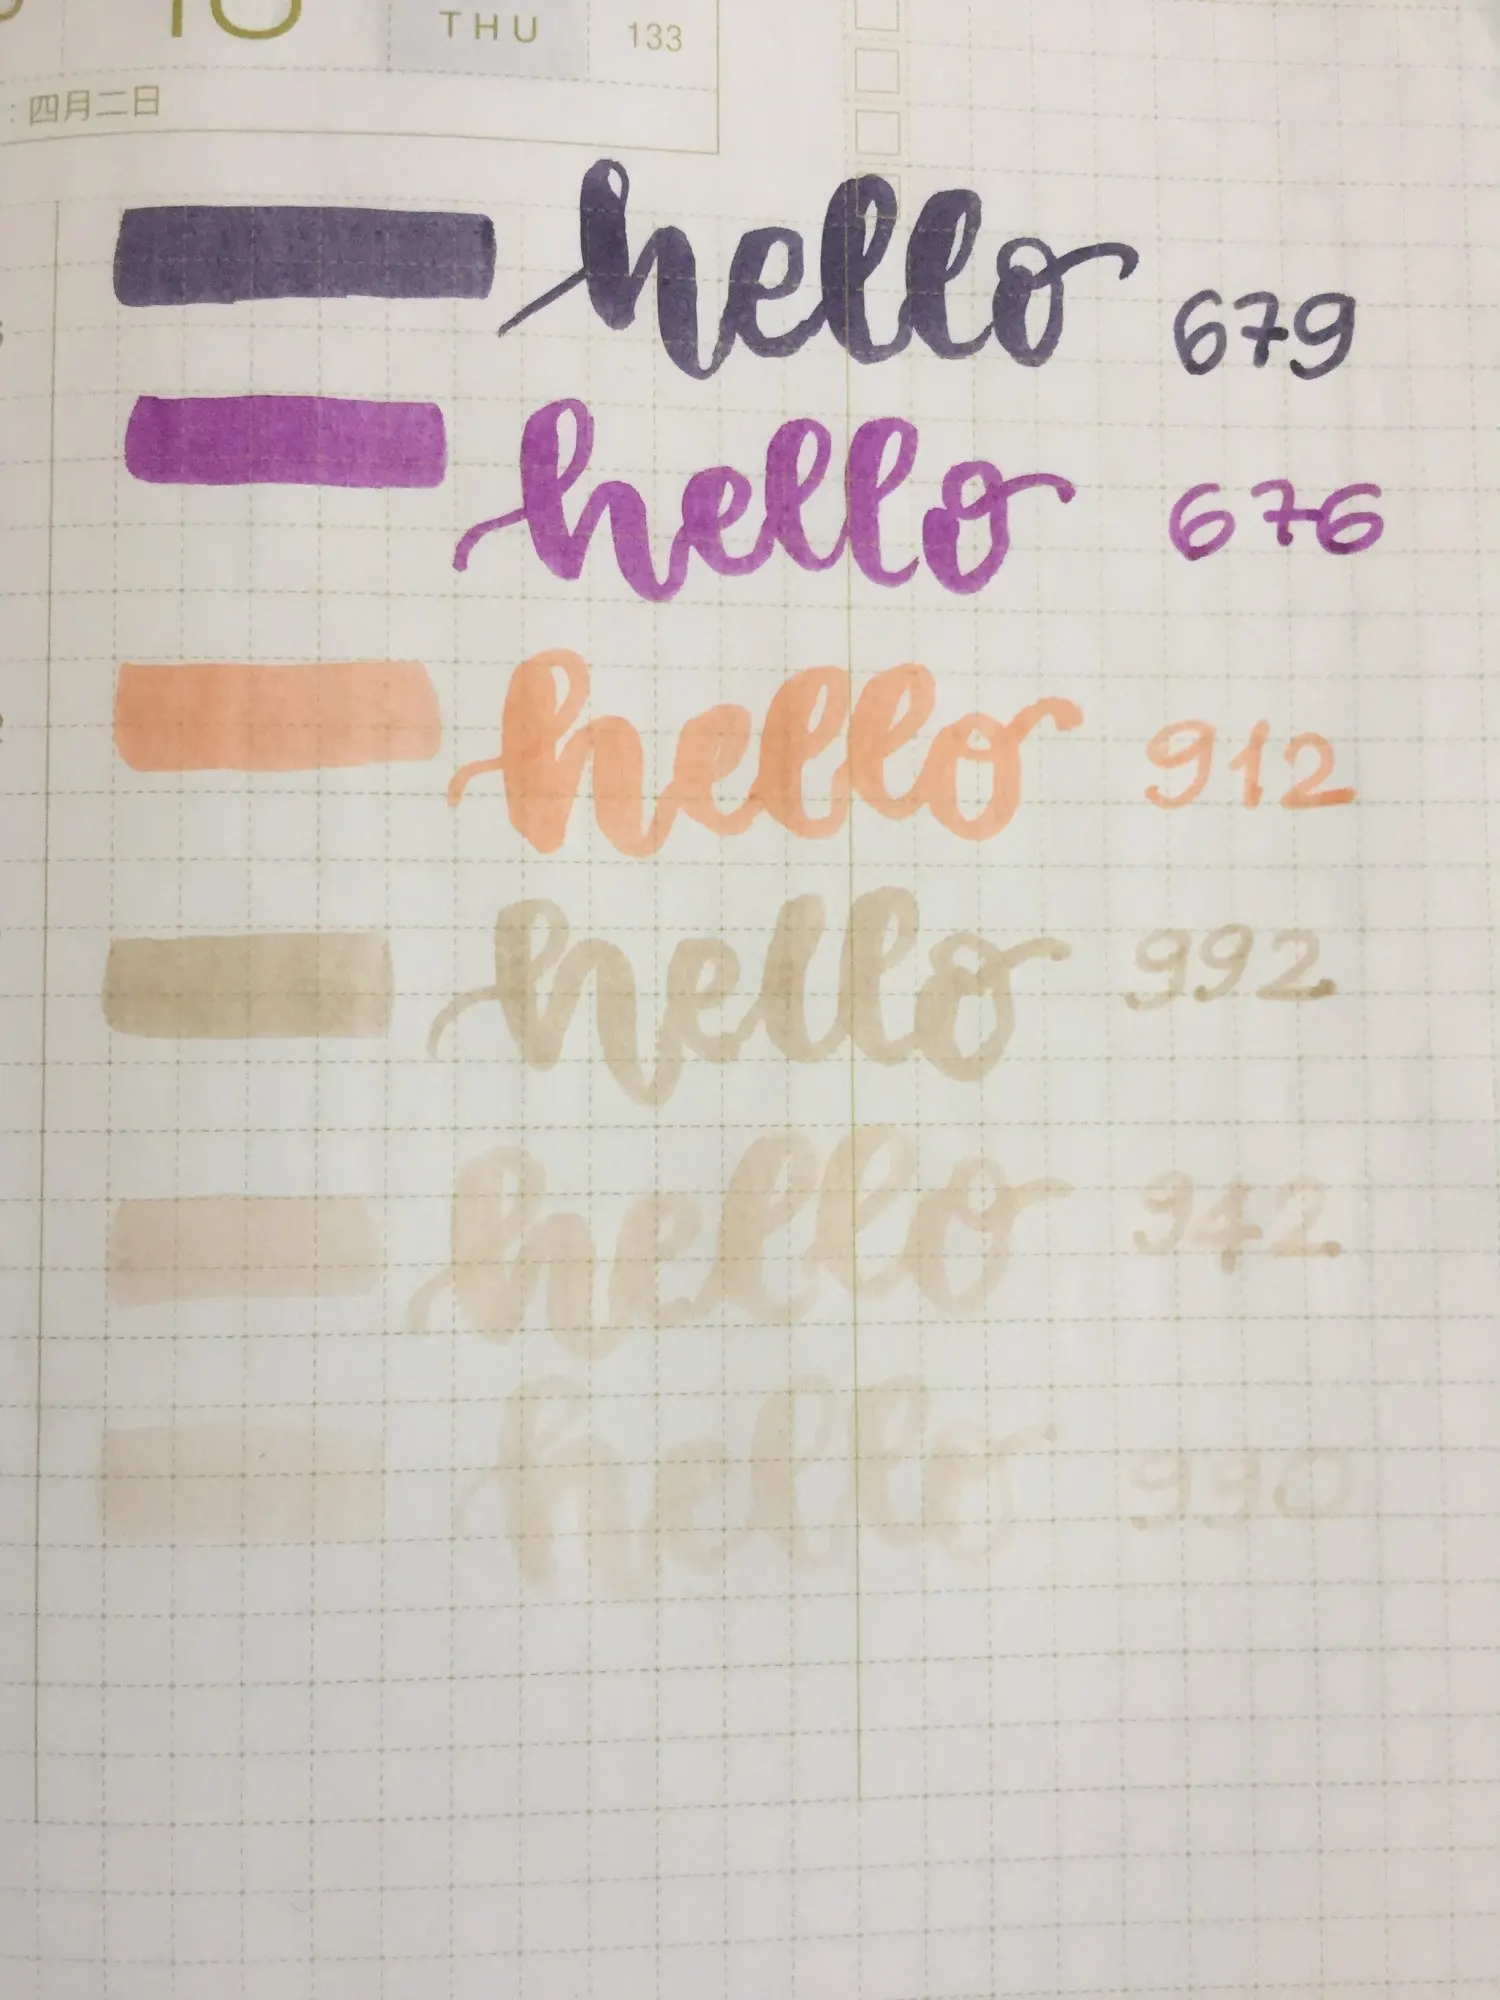 THU 133
: 四月二日
hello 679
hello 676
hello 912
hello 992
hello 942
hello 990